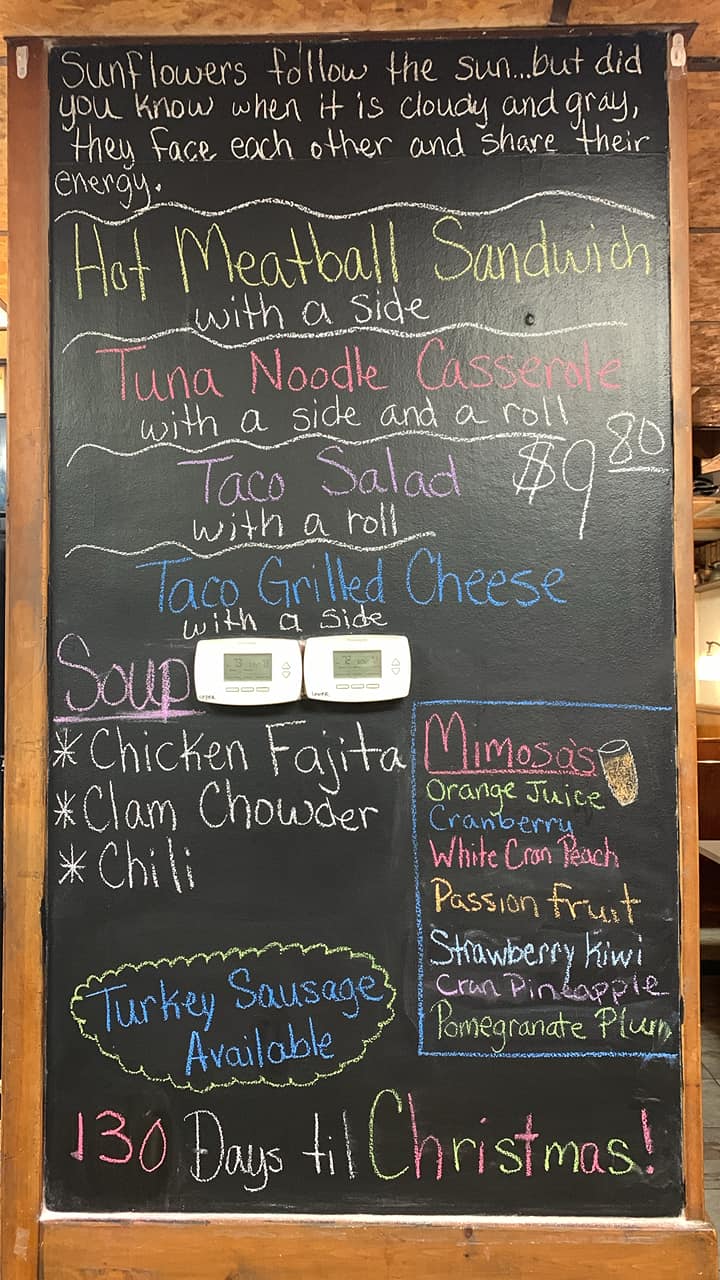 Sunflowers follow the sun...but did
you know when it is cloudy and gray,
they face each other and share their
energy.
Hot Meatball Sandwich
with a side
Tuna Noodle Casserole
with a side and a roll
Taco Salad $9 80
with a roll
Taco Grilled Cheese
with a side
Soup
* Chicken Fajita
* Clam Chowder
* Chili
Mimosa's
Orange Juice
Cranberry
White Cran Peach
Passion fruit
Strawberry Kiwi
Cran Pineapple
Pomegranate Plum
Turkey Sausage
Available
130 Days til Christmas!